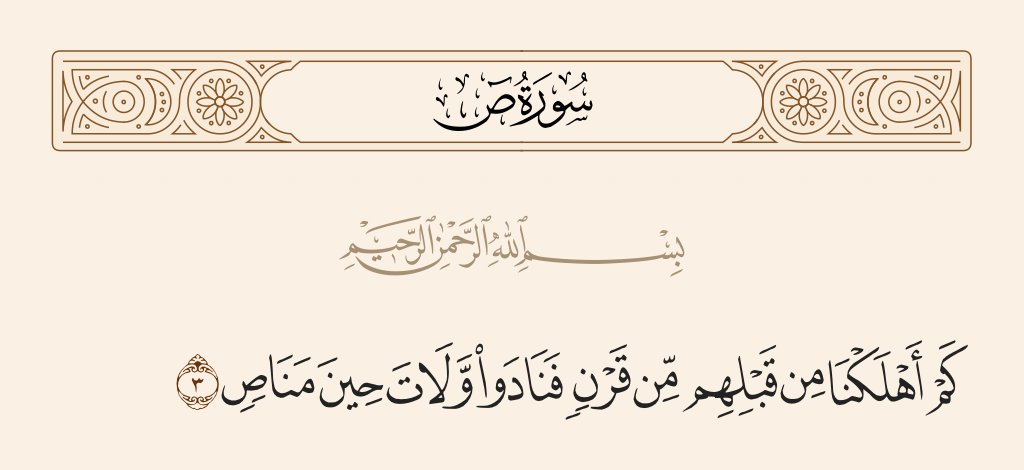 سُورَةُ صٓ
بِسْمِ ٱللَّهِ ٱلرَّحْمَٰنِ ٱلرَّحِيمِ
كَمْ أَهْلَكْنَا مِن قَبْلِهِم مِّن قَرْنٍ فَنَادَوا۟ وَّلَاتَ حِينَ مَنَاصٍ ٣